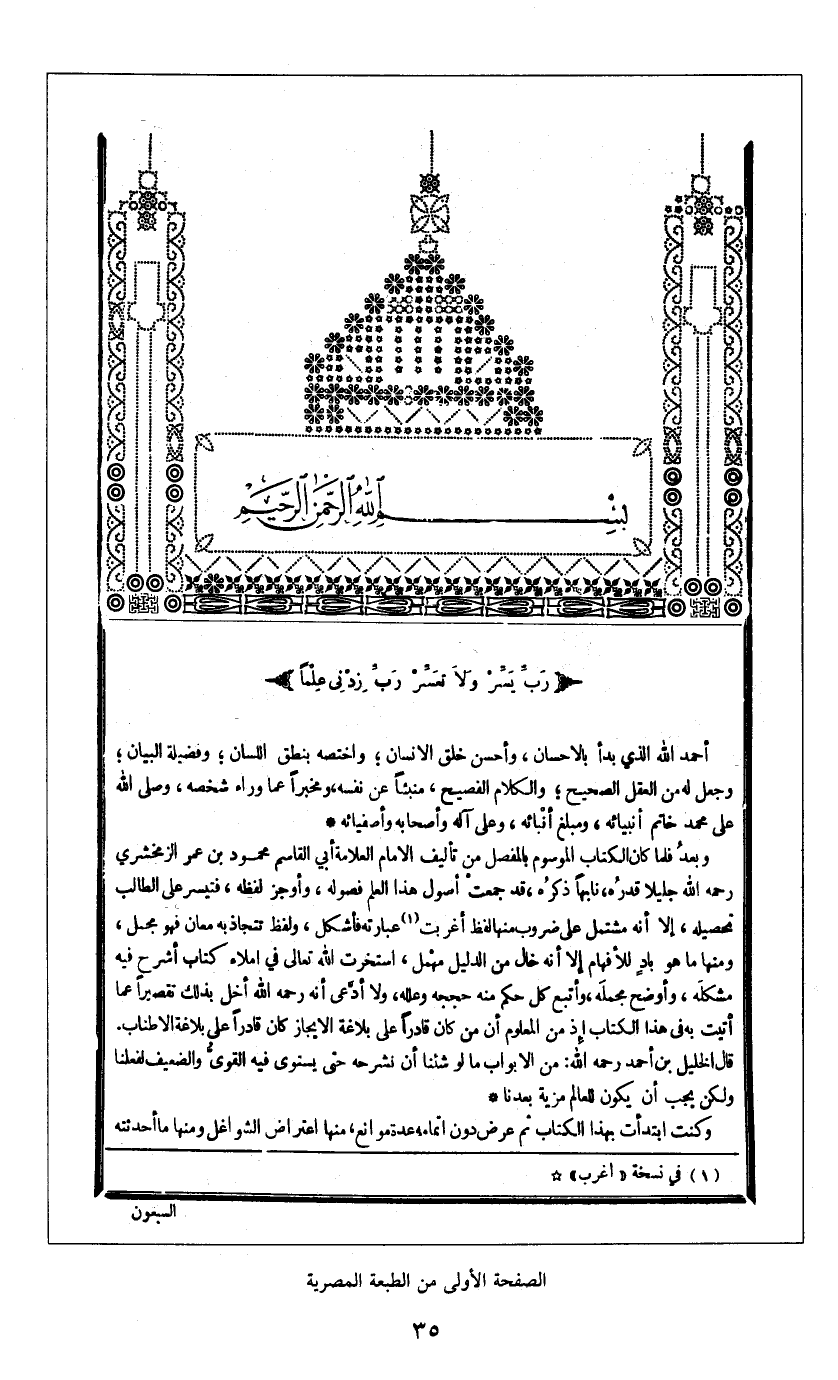 بِسْمِ اللهِ الرَّحْمٰنِ الرَّحِيمِ
رَبِّ يَسِّرْ وَلَا تُعَسِّرْ رَبِّ زِدْنِى عِلْماً
أحمد الله الذي بدأ بالاحسان ، وأحسن خلق الانسان ؛ واختصه بنطق اللسان ؛ وفضيلة البيان ؛
وجعل له من العقل الصحيح ؛ والكلام الفصيح ، منبئاً عن نفسه، ومخبراً عما وراء شخصه ، وصلى الله
على محمد خاتم أنبيائه ، ومبلغ أنبائه ، وعلى آله وأصحابه وأصفيائه *
وبعدُ فلما كان الكتاب الموسوم بالمفصل من تأليف الامام العلامة أبي القاسم محمود بن عمر الزمخشري
رحمه الله جليلا قدرُه، نابهاً ذكرُه ، قد جمعتْ أصول هذا العلم فصوله ، وأوجز لفظه ، فتيسر على الطالب
تحصيله ، إلا أنه مشتمل على ضروب منها لفظ أغربت (١) عبارته فأشكل ، ولفظ تتجاذبه معان فهو مجمل ،
ومنها ما هو بادٍ للأفهام إلا أنه خال من الدليل مهمل ، استخرت الله تعالى في املاء كتاب أشرح فيه
مشكله ، وأوضح مجمله، وأتبع كل حكم منه حججه وعلله، ولا أدّعى أنه رحمه الله أخل بذلك تقصيراً عما
أتيت به فى هذا الكتاب إذ من المعلوم أن من كان قادراً على بلاغة الايجاز كان قادراً على بلاغة الاطناب.
قال الخليل بن أحمد رحمه الله: من الابواب ما لو شئنا أن نشرحه حتى يستوى فيه القوىُّ والضعيف لفعلنا
ولكن يجب أن يكون للعالم مزية بعدنا *
وكنت ابتدأت بهذا الكتاب ثم عرض دون اتمامه عدة موانع، منها اعتراض الشواغل ومنها ما أحدثته
(١) في نسخة «أغرب» ☆
السبعون
الصفحة الأولى من الطبعة المصرية
٣٥